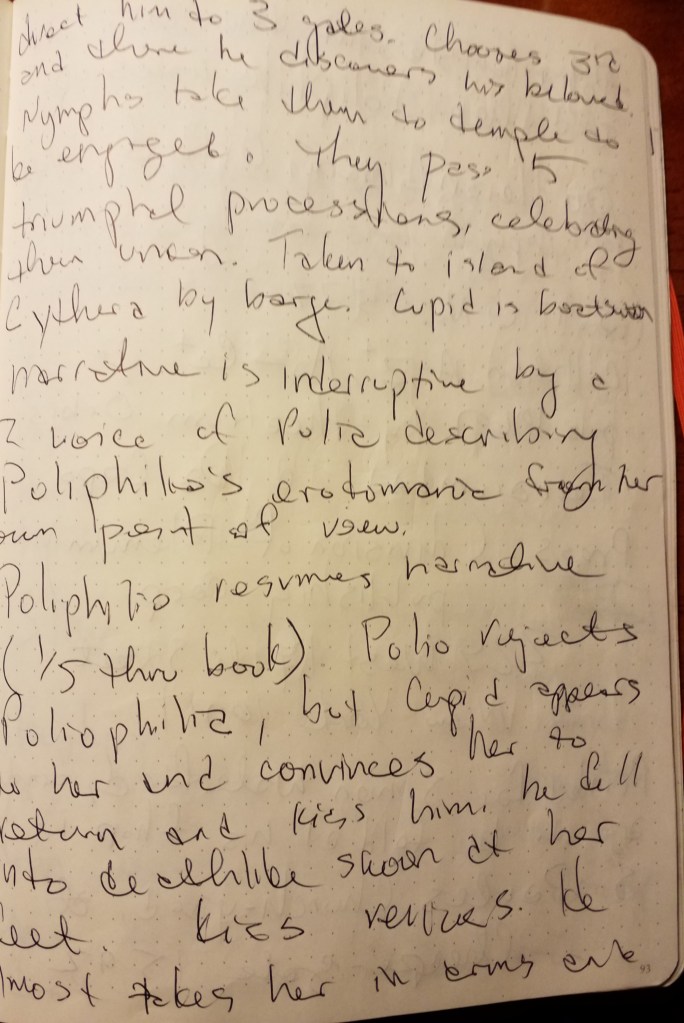 direct him to 3 gates. Chooses 3rd
and there he discovers his beloved.
Nymphs take them to temple to
be engaged. They pass 5
triumphal processions, celebrating
their union. Taken to island of
Cythera by barge. Cupid is boatswain
narrative is interruptive by a
2 voice of Polia describing
Poliphilo's erotomania from her
own point of view.
Poliphilo resumes narrative
(1/5 thru book). Polio rejects
Poliophilia, but Cupid appears
to her and convinces her to
return and kiss him. he fell
into deathlike swoon at her
feet. Kiss revives. He
almost takes her in arms
93